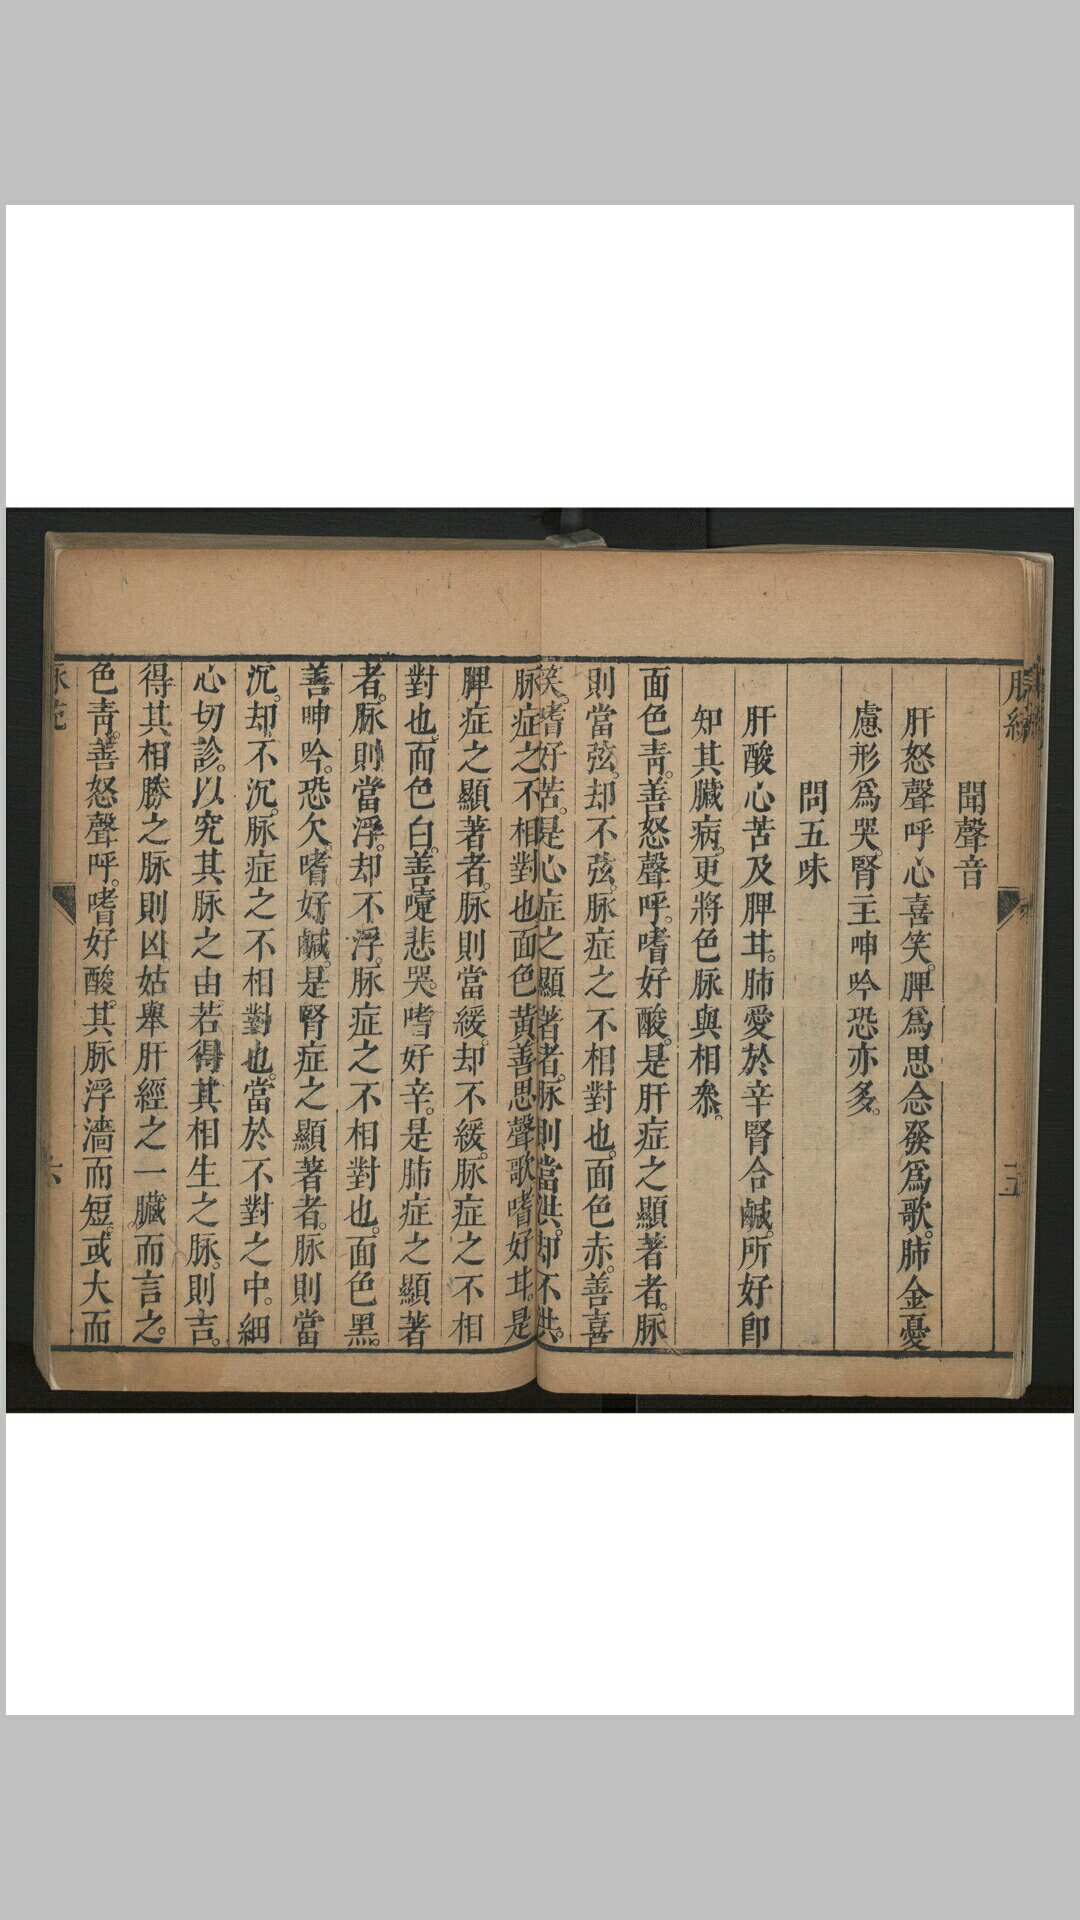 聞聲音
肝怒聲呼心喜笑。脾爲思念發爲歌。肺金憂
慮形爲哭。腎主呻吟恐亦多。
問五味
肝酸心苦及脾甘。肺愛於辛腎合鹹。所好卽
知其臟病。更將色脉與相參。
面色靑。善怒聲呼。嗜好酸。是肝症之顯著者。脉
則當弦。却不弦。脉症之不相對也。面色赤。善喜
笑。嗜好苦。是心症之顯著者。脉則當洪。却不洪。
脉症之不相對也面色黃善思聲歌嗜好甘。是
脾症之顯著者。脉則當緩。却不緩。脉症之不相
對也。而色白。善嚏悲哭。嗜好辛。是肺症之顯著
者。脉則當浮。却不浮。脉症之不相對也。面色黑。
善呻吟。恐欠嗜好鹹。是腎症之顯著者。脉則當
沉。却不沉。脉症之不相對也。當於不對之中。細
心切診。以究其脉之由若得其相生之脉。則吉。
得其相勝之脉則凶姑舉肝經之一臟。而言之。
色靑。善怒聲呼。嗜好酸。其脉浮濇而短。或大而
六